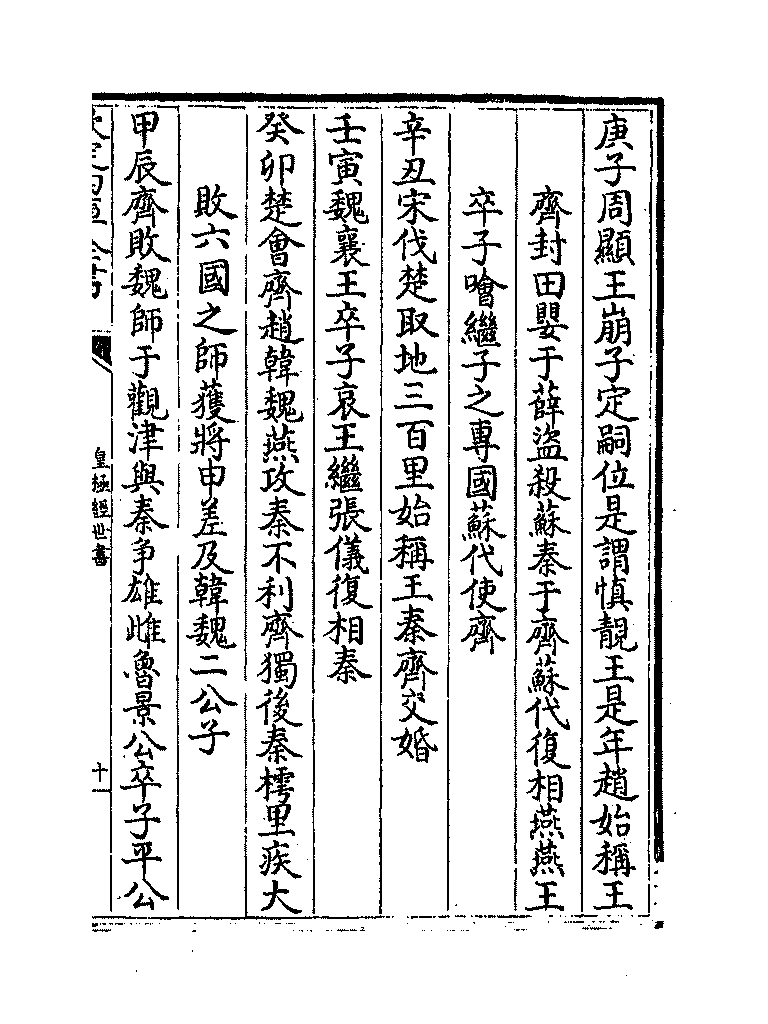 庚子周顯王崩子定嗣位是謂慎靚王是年趙始稱王
齊封田嬰于薛盜殺蘇秦于齊蘇代復相燕燕王
卒子噲繼子之專國蘇代使齊
辛丑宋伐楚取地三百里始稱王秦齊交婚
壬寅魏襄王卒子哀王繼張儀復相秦
癸卯楚會齊趙韓魏燕攻秦不利齊獨後秦樗里疾大
敗六國之師獲將申差及韓魏二公子
甲辰齊敗魏師于觀津與秦爭雄雌魯景公卒子平公
皇極經世書
十一